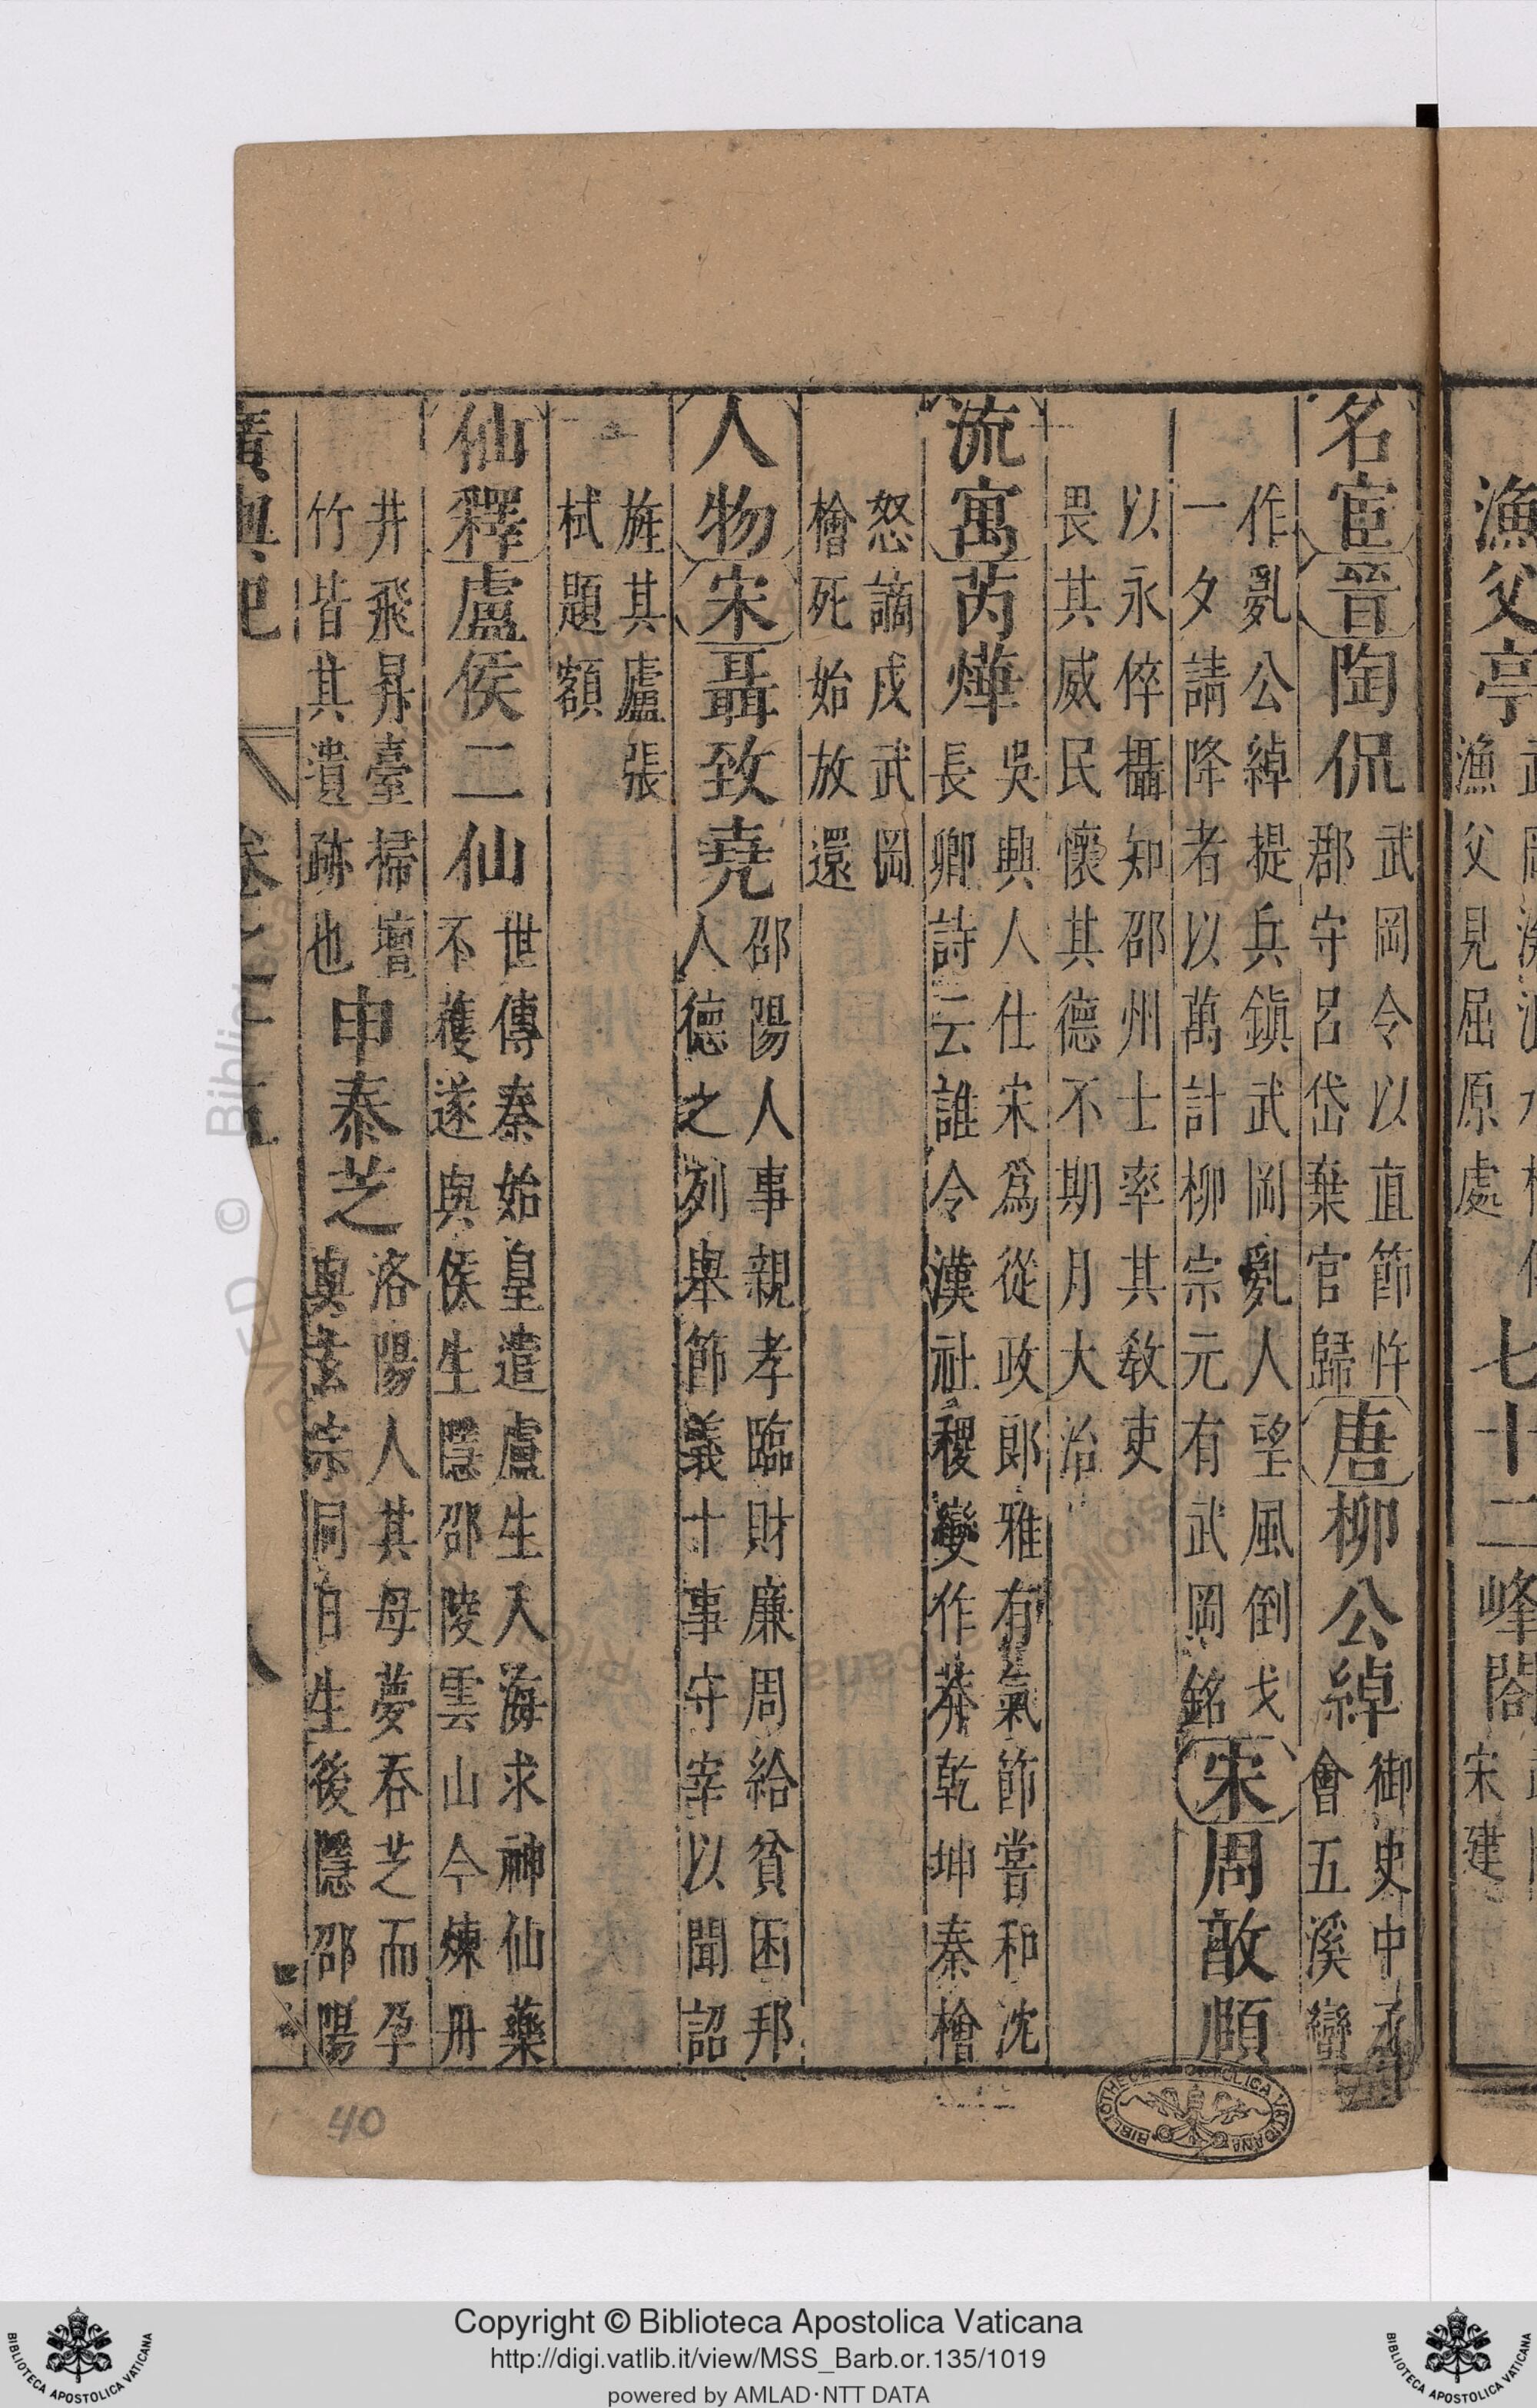 漁父亭漁父見屈原處七十二峰閣宋建
名宦晉陶侃武岡令以直節忤郡守呂岱棄官歸唐柳公綽御史中丞會五溪蠻
作亂公綽提兵鎮武岡亂人望風倒戈一夕請降者以萬計柳宗元有武岡銘宋周敦頤
以永倅攝知邵州士率其教吏畏其威民懷其德不期月大治
流寓芮燁吳興人仕宋爲從政郎雅有氣節嘗和沈長卿詩云誰令漢社稷變作莽乾坤秦檜
怒謫戍武岡檜死始放還
人物宋聶致堯邵陽人事親孝臨財廉周給貧困邦人德之列舉節義十事守宰以聞詔
旌其廬張栻題額
仙釋盧侯二仙世傳秦始皇遣盧生入海求神仙藥不獲遂與侯生隱邵陵雲山今煉丹
井飛昇臺掃壇竹皆其遺跡也申泰芝洛陽人其母夢吞芝而孕與玄宗同日生後隱邵陽
廣輿記
40
Copyright © Biblioteca Apostolica Vaticana
http://digi.vatlib.it/view/MSS_Barb.or.135/1019
powered by AMLAD·NTT DATA
BIBLIOTECA APOSTOLICA VATICANA
BIBLIOTECA APOSTOLICA VATICANA